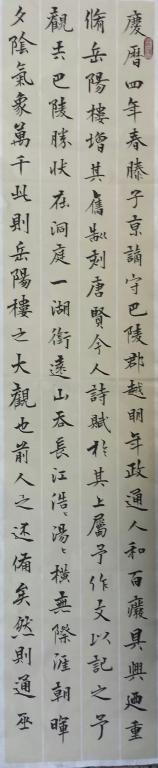 慶曆四年春滕子京謫守巴陵郡越明年政通人和百癈具興迺重
脩岳陽樓增其舊制刻唐賢今人詩賦於其上屬予作文以記之予
觀夫巴陵勝狀在洞庭一湖銜遠山吞長江浩〻湯〻橫無際涯朝暉
夕陰氣象萬千此則岳陽樓之大觀也前人之述備矣然則通巫